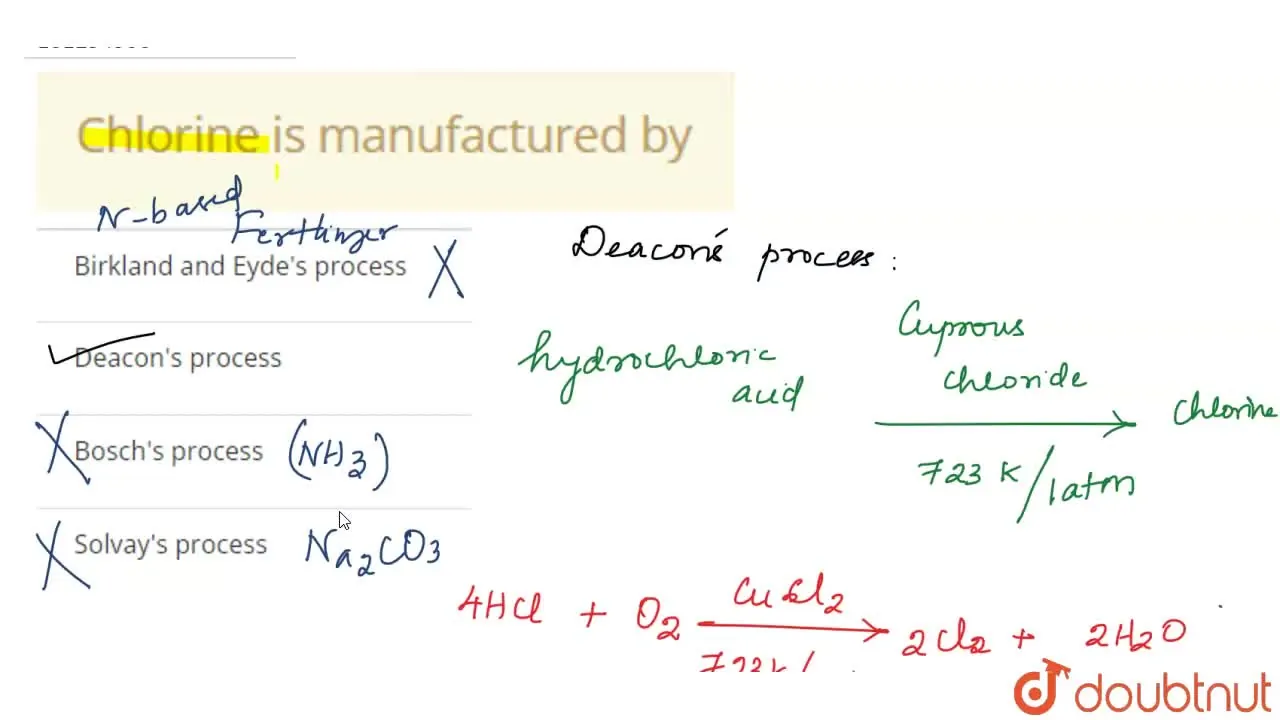 Chlorine is manufactured by
N-based
Fertlinzer
Birkland and Eyde's process X
Deacon's process
X Bosch's process (NH3)
X Solvay's process Na2CO3
Deacon's process:
hydrochloric
acid
Cuprous
chloride
723 K/1atm
Chlorine
4HCl + O2 CuCl2 2Cl2 + 2H2O
723K/
doubtnut